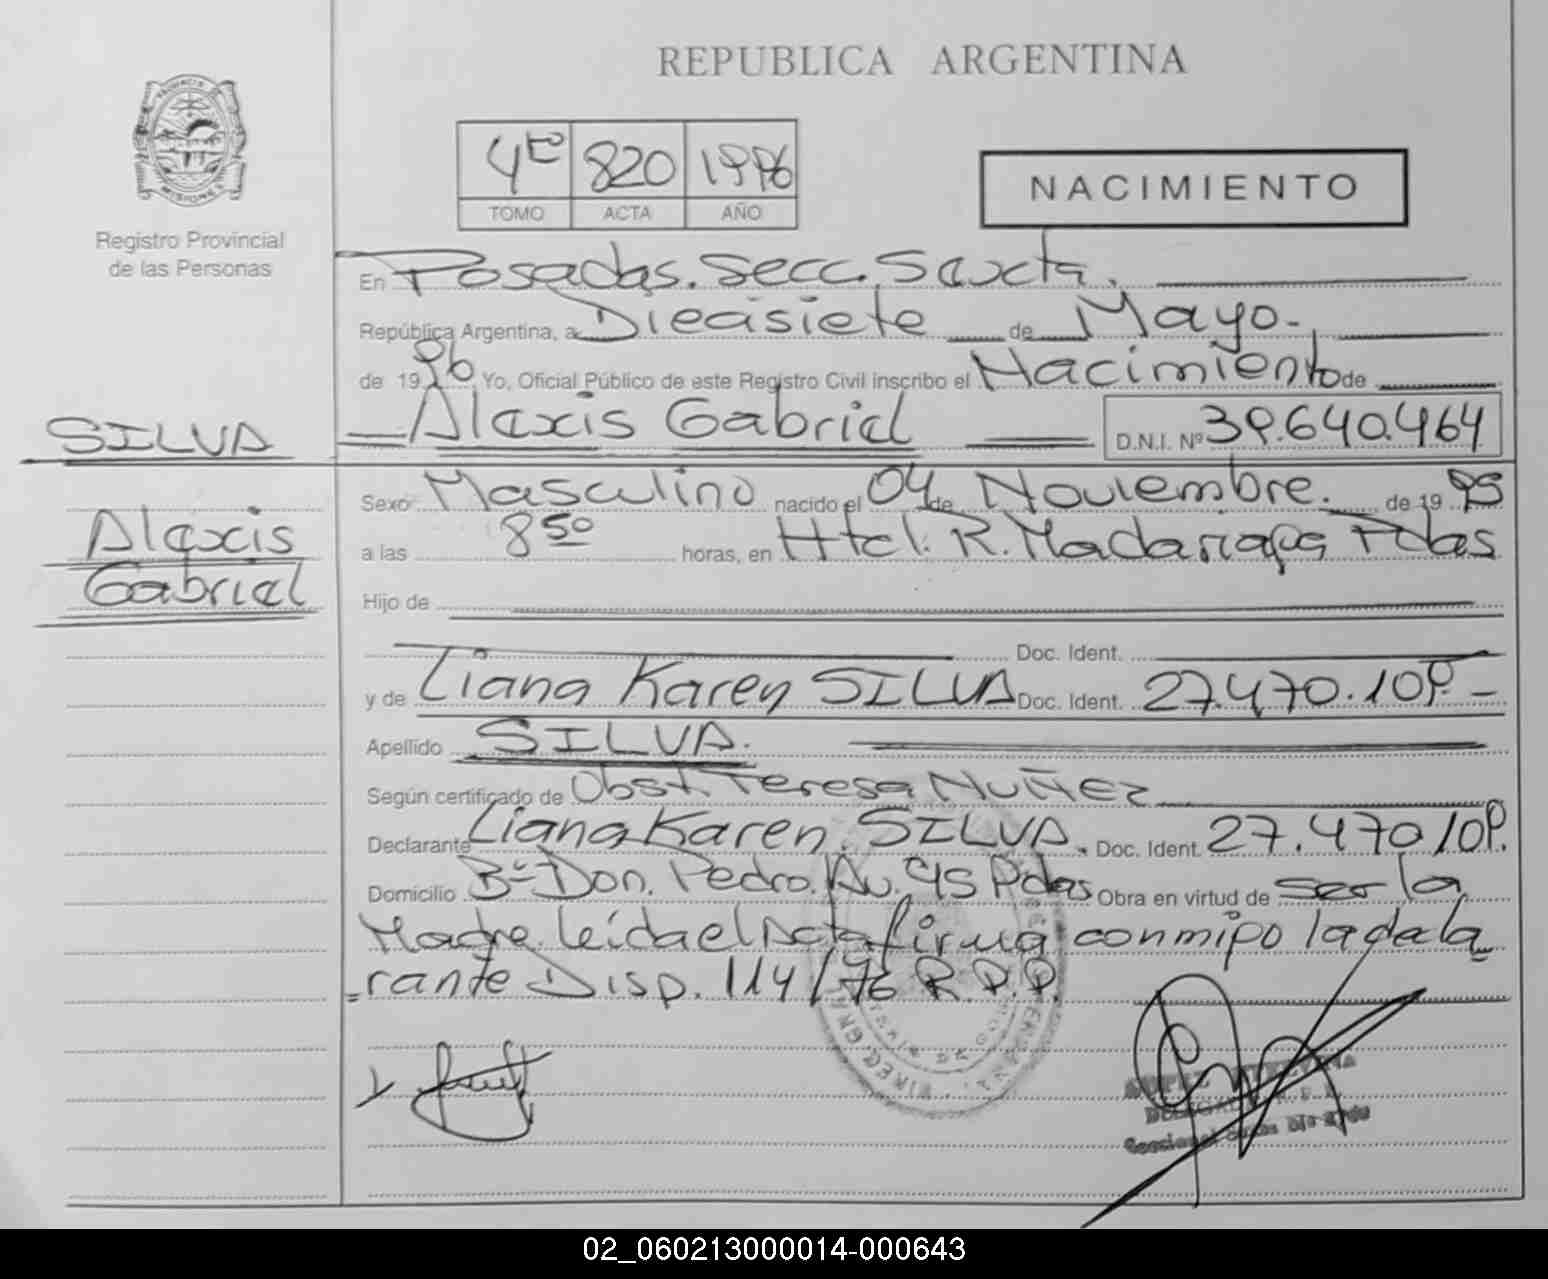 REPUBLICA ARGENTINA
4to 820 1996
TOMO ACTA AÑO
NACIMIENTO
MISIONES
Registro Provincial
de las Personas
En Posadas. Secc. Sexta.
República Argentina, a Diecisiete de Mayo.
de 19 96 Yo, Oficial Público de este Registro Civil inscribo el Nacimiento de
SILVA
Alexis Gabriel D.N.I. Nº 39.640.464
Alexis
Gabriel
Sexo Masculino nacido el 04 de Noviembre. de 19 95
a las 8 50 horas, en Htal. R. Madariaga Pdas
Hijo de
Doc. Ident.
y de Liana Karen SILVA Doc. Ident. 27.470.109.-
Apellido SILVA.
Según certificado de Obst. Teresa NuÑez
Declarante Liana Karen. SILVA. Doc. Ident. 27.470109.
Domicilio Bº Don. Pedro. Av. 45 Pdas Obra en virtud de ser la
Madre. leída el Acta firma conmigo la decla
=rante Disp. 114/76 R.P.P.
02_060213000014-000643